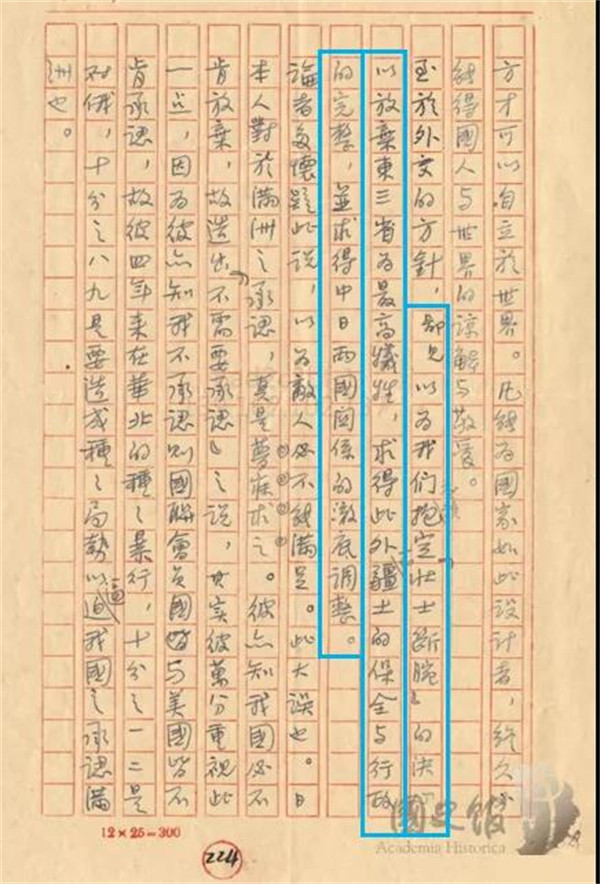 方才可以自立於世界。凡能為國家如此設計者,終久必
能得國人与世界的諒解与敬愛。
至於外交的方針,鄙見以為我們必須抱定「壯士斷腕」的決
以放棄東三省為最高犧牲,求得此外疆土的保全与行政
的完整,並求得中日兩國関係的澈底調整。
論者多懷疑此說,以為敵人必不能滿足。此大誤也。日
本人對於滿洲之承認,真是夢寐求之。彼亦知我國必不
肯放棄,故造出「不需要承認」之說,其实彼萬分重視此
一点,因為彼亦知我不承認則國聯會員國与美國皆不
肯承認,故彼四年來在華北的種々暴行,十分之一二是
对俄,十分之八九是要造成種々局勢以逼我國之承認滿
洲也。
12×25=300
224
國史館
Academia Historica